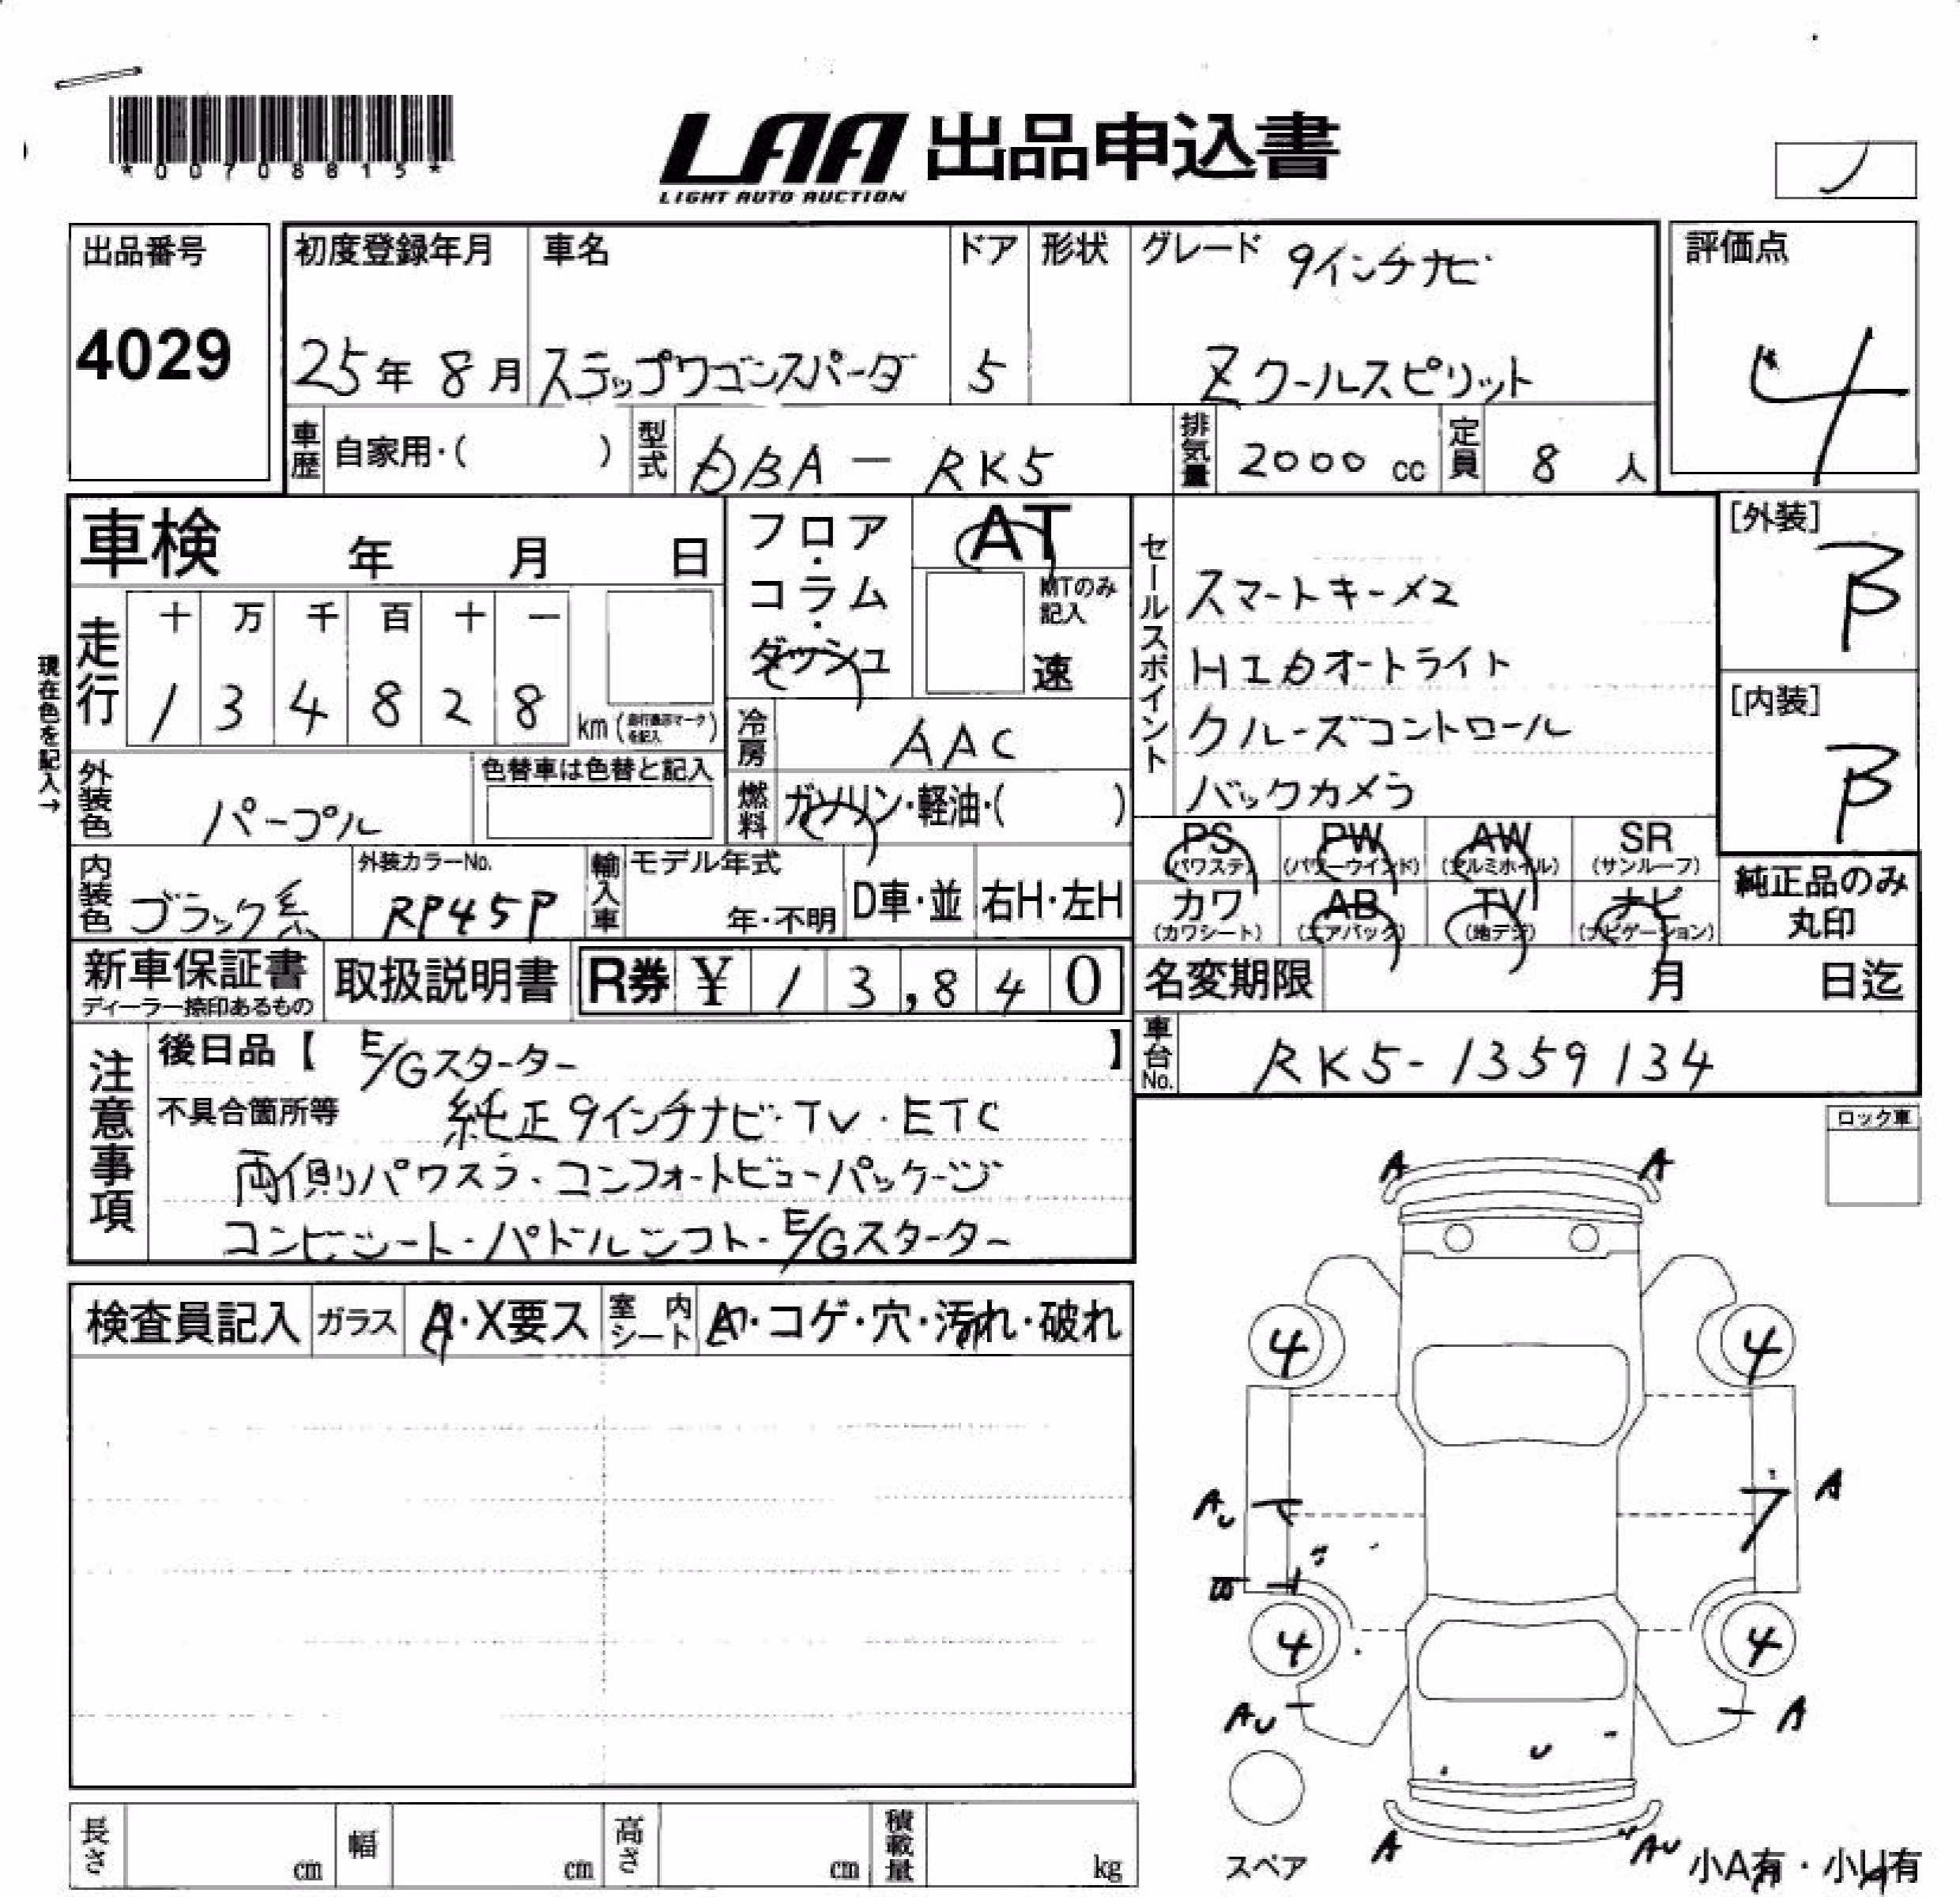 *00708815*
LAA 出品申込書
LIGHT AUTO AUCTION
出品番号
4029
初度登録年月
25年 8月
車名
ステップワゴンスパーダ
ドア
5
形状
グレード
9インチナビ
Zクールスピリット
評価点
4
車歴 自家用・( )
型式 DBA - RK5
排気量 2000 cc
定員 8 人
車検 年 月 日
フロア・コラム・ダッシュ
AT
MTのみ記入
速
セールスポイント
スマートキー×2
HIDオートライト
クルーズコントロール
バックカメラ
[外装]
B
[内装]
B
現在色を記入→
走行
十 万 千 百 十 一
1 3 4 8 2 8 km (走行表示マークを記入)
冷房 AAC
外装色 パープル
色替車は色替と記入
燃料 ガソリン・軽油・( )
内装色 ブラック系
外装カラーNo.
RP45P
輸入車
モデル年式
年・不明
D車・並
右H・左H
PS (パワステ)
PW (パワーウインド)
AW (アルミホイル)
SR (サンルーフ)
カワ (カワシート)
AB (エアバック)
TV (地デジ)
ナビ (ナビゲーション)
純正品のみ丸印
新車保証書
ディーラー捺印あるもの
取扱説明書
R券 ¥ 13,840
名変期限 月 日迄
車台No. RK5-1359134
注意事項
後日品【 E/Gスターター 】
不具合箇所等 純正9インチナビ・TV・ETC
両側パワスラ・コンフォートビューパッケージ
コンビシート・パドルシフト・E/Gスターター
ロック車
検査員記入
ガラス
A・X要ス
室内シート
コゲ・穴・汚れ・破れ
A A
4 4
AU A
4 4
AU A
U
A AU
スペア
小A有・小U有
長さ cm
幅 cm
高さ cm
積載量 kg